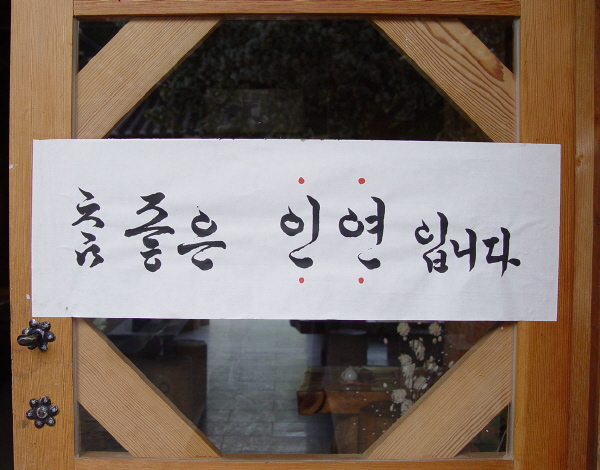 참 좋은 인연 입니다.